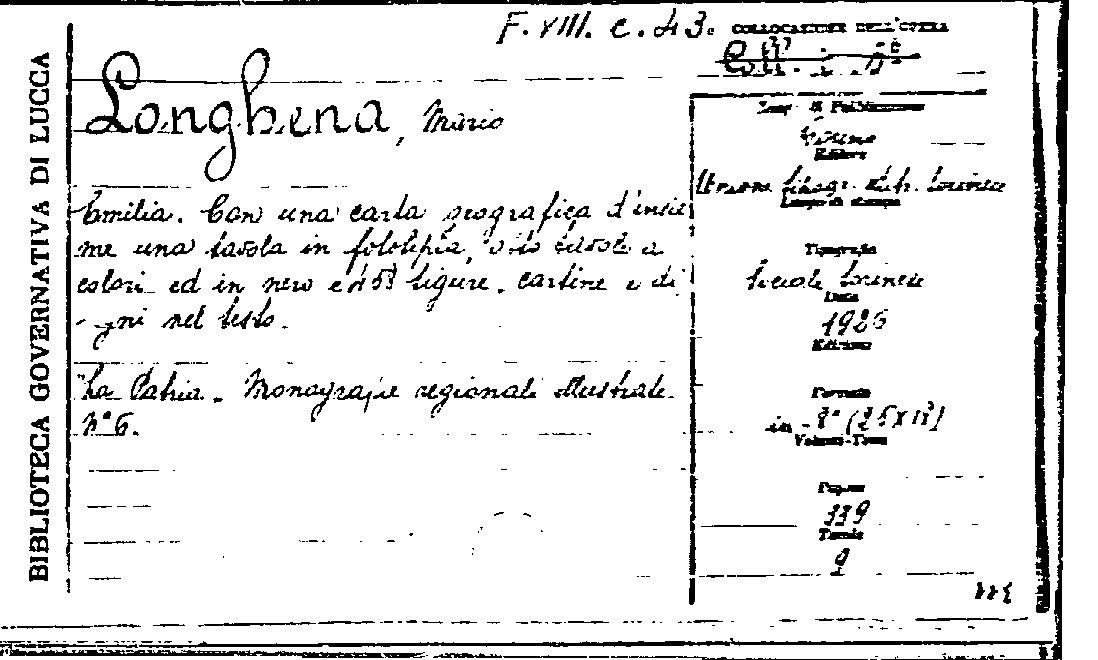 BIBLIOTECA GOVERNATIVA DI LUCCA
F. VIII. c. 43.
COLLOCAZIONE DELL'OPERA
Longhena, Mario
Emilia. Con una carta geografica d'insie
me una tavola in fototipia, otto tavole a
colori ed in nero e figure. cartine e di
gni nel testo.
La Patria. Monografie regionali illustrate.
N° 6.
Luog. di Pubblicazione
Torino
Editore
Unione Tipogr. Edit. Torinese
Luogo di stampa
Tipografia
Sociale Torinese
Data
1926
Edizione
Formato
in-8° (25x17)
Volumi-Tomi
Pagine
339
Tavole
9